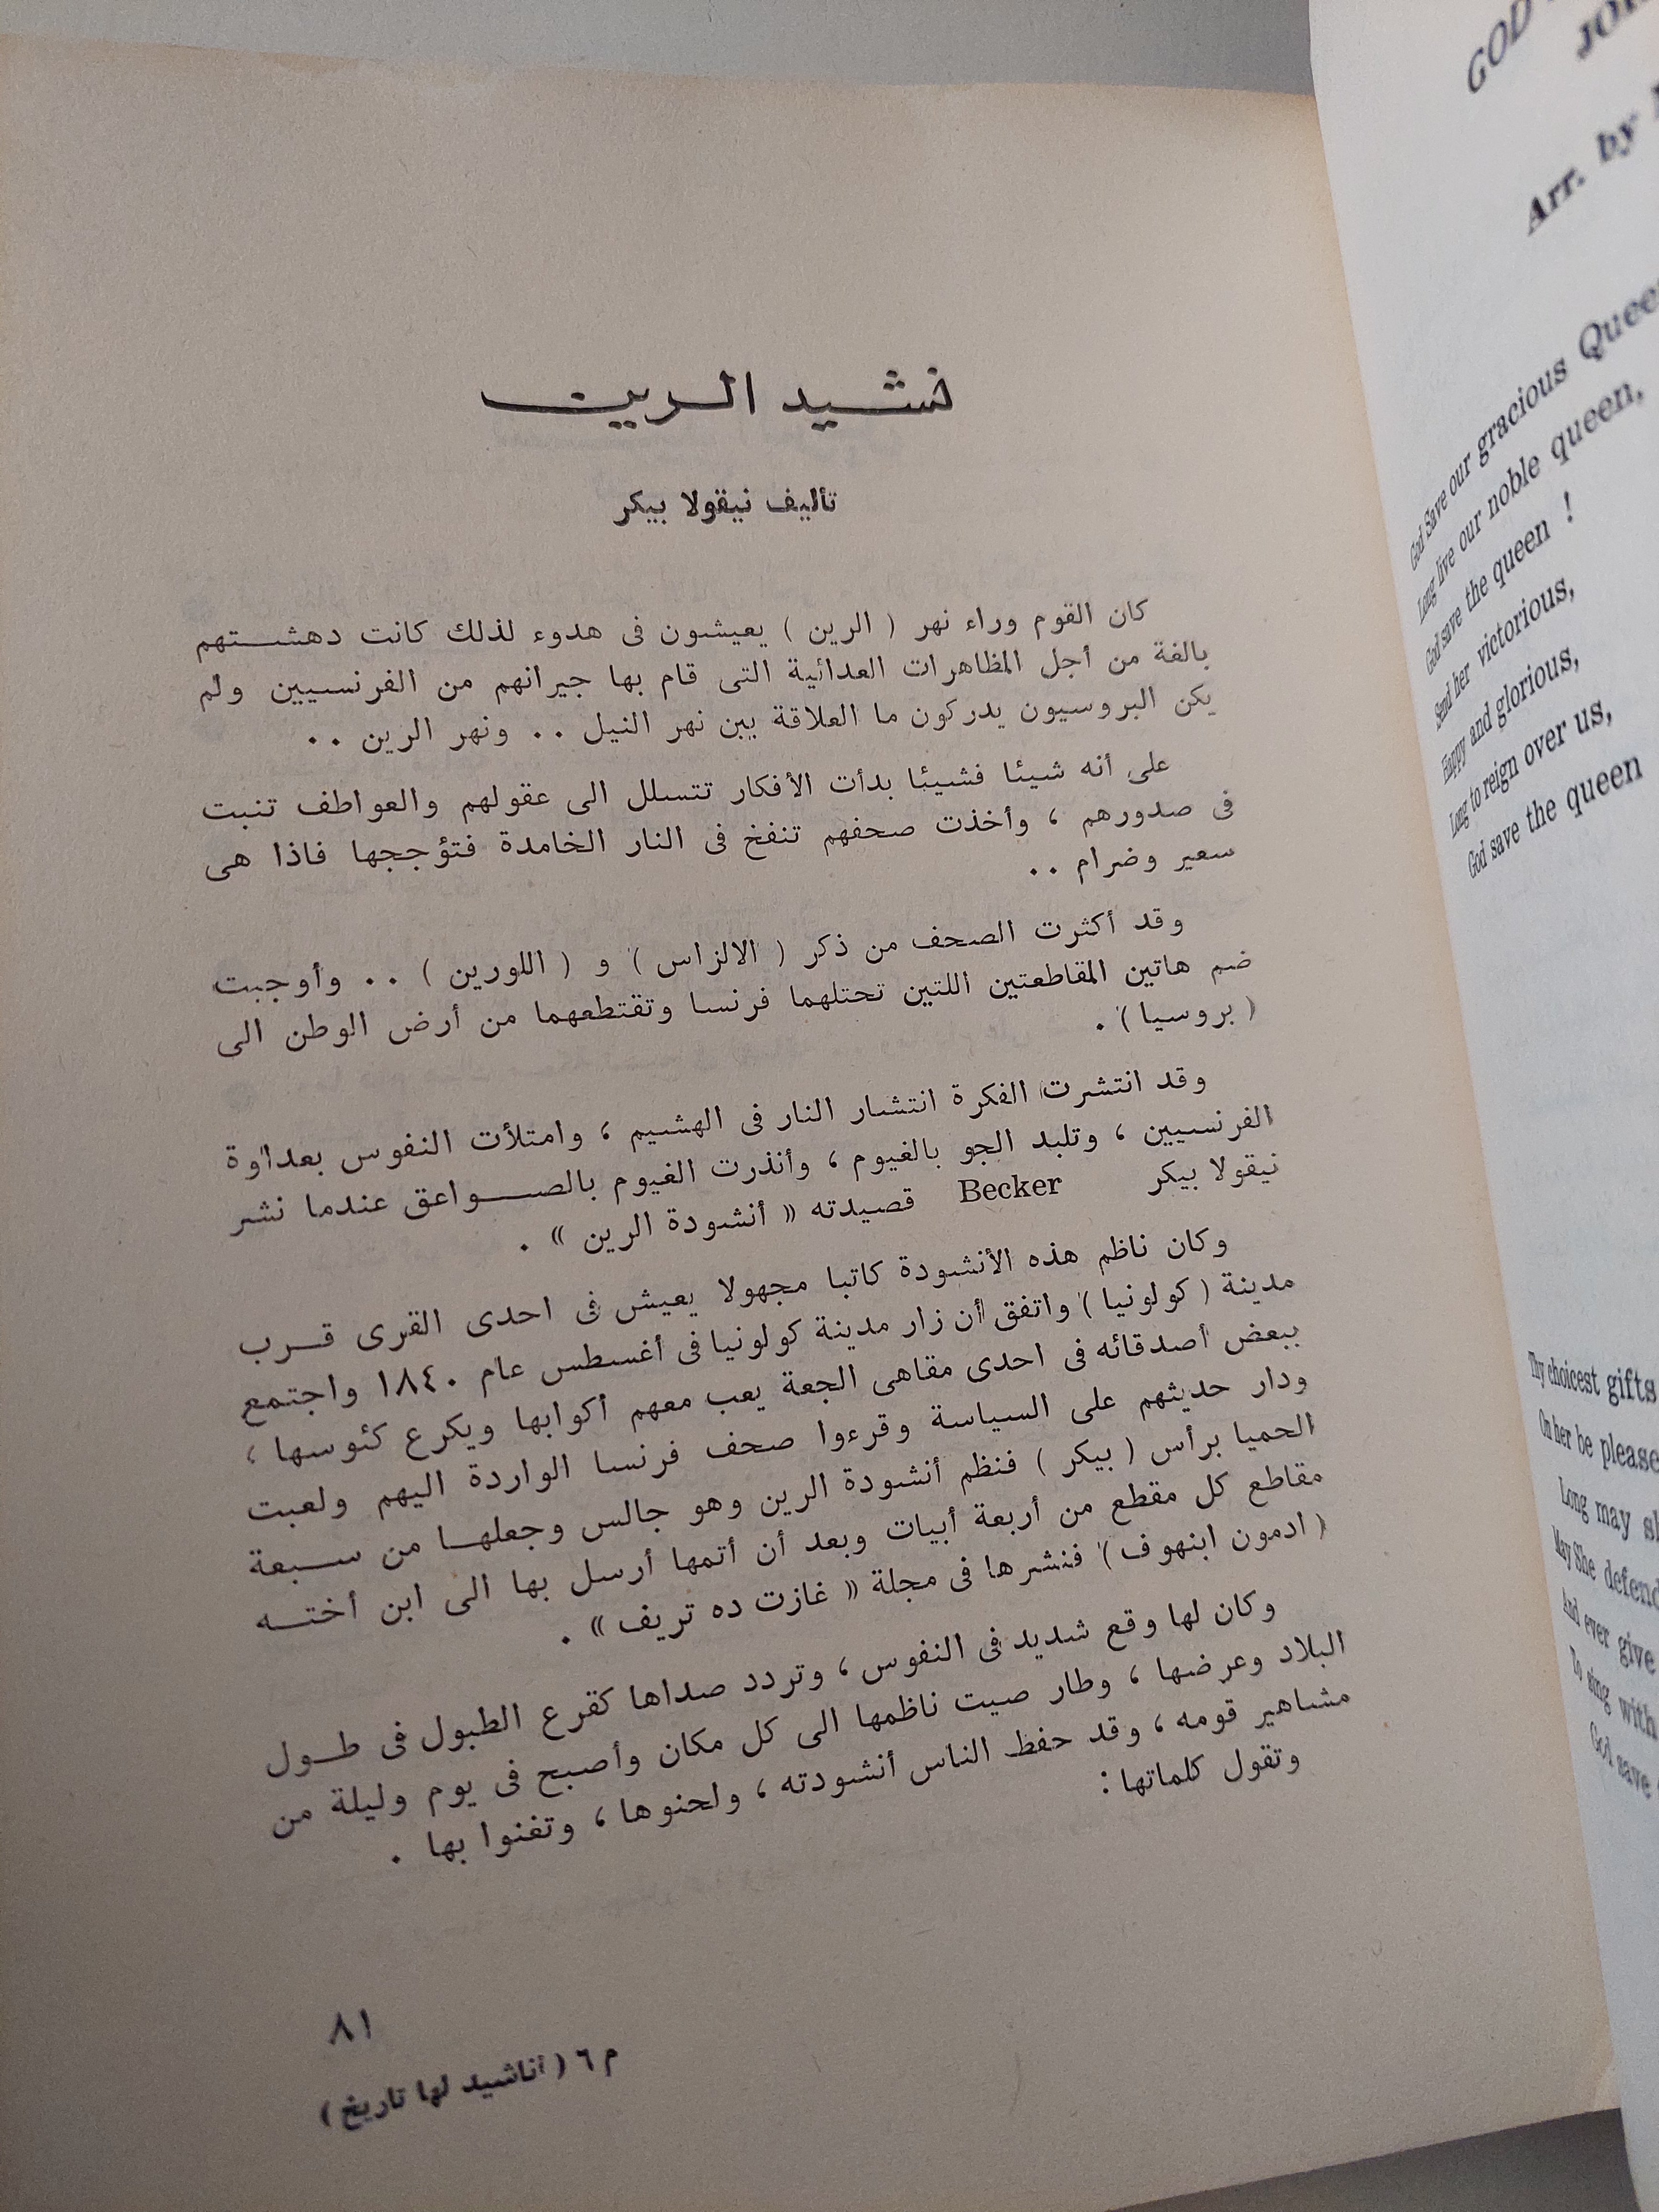 نشيد الرين
تأليف نيقولا بيكر
كان القوم وراء نهر ( الرين ) يعيشون فى هدوء لذلك كانت دهشتهم
بالغة من أجل المظاهرات العدائية التى قام بها جيرانهم من الفرنسيين ولم
يكن البروسيون يدركون ما العلاقة بين نهر النيل ٠٠ ونهر الرين ٠٠
على أنه شيئا فشيئا بدأت الأفكار تتسلل الى عقولهم والعواطف تنبت
فى صدورهم ، وأخذت صحفهم تنفخ فى النار الخامدة فتؤججها فاذا هى
سعير وضرام ٠٠
وقد أكثرت الصحف من ذكر ( الالزاس ) و ( اللورين ) ٠٠ وأوجبت
ضم هاتين المقاطعتين اللتين تحتلهما فرنسا وتقتطعهما من أرض الوطن الى
( بروسيا ) ٠
وقد انتشرت الفكرة انتشار النار فى الهشيم ، وامتلأت النفوس بعداوة
الفرنسيين ، وتلبد الجو بالغيوم ، وأنذرت الغيوم بالصواعق عندما نشر
نيقولا بيكر Becker قصيدته « أنشودة الرين » ٠
وكان ناظم هذه الأنشودة كاتبا مجهولا يعيش فى احدى القرى قرب
مدينة ( كولونيا ) واتفق أن زار مدينة كولونيا فى أغسطس عام ١٨٤٠ واجتمع
ببعض أصدقائه فى احدى مقاهى الجعة يعب معهم أكوابها ويكرع كئوسها ،
ودار حديثهم على السياسة وقرءوا صحف فرنسا الواردة اليهم ولعبت
الحميا برأس ( بيكر ) فنظم أنشودة الرين وهو جالس وجعلها من سبعة
مقاطع كل مقطع من أربعة أبيات وبعد أن أتمها أرسل بها الى ابن أخته
( ادمون ابنهوف ) فنشرها فى مجلة « غازت ده تريف » ٠
وكان لها وقع شديد فى النفوس ، وتردد صداها كقرع الطبول فى طول
البلاد وعرضها ، وطار صيت ناظمها الى كل مكان وأصبح فى يوم وليلة من
مشاهير قومه ، وقد حفظ الناس أنشودته ، ولحنوها ، وتغنوا بها ٠
وتقول كلماتها :
٨١
م ٦ ( أناشيد لها تاريخ )
GOD
Arr. by
God Save our gracious Queen
Long live our noble queen,
God save the queen !
Send her victorious,
Happy and glorious,
Long to reign over us,
God save the queen
Thy choicest gifts
On her be please
Long may
May She defend
And ever give
To sing with
God save